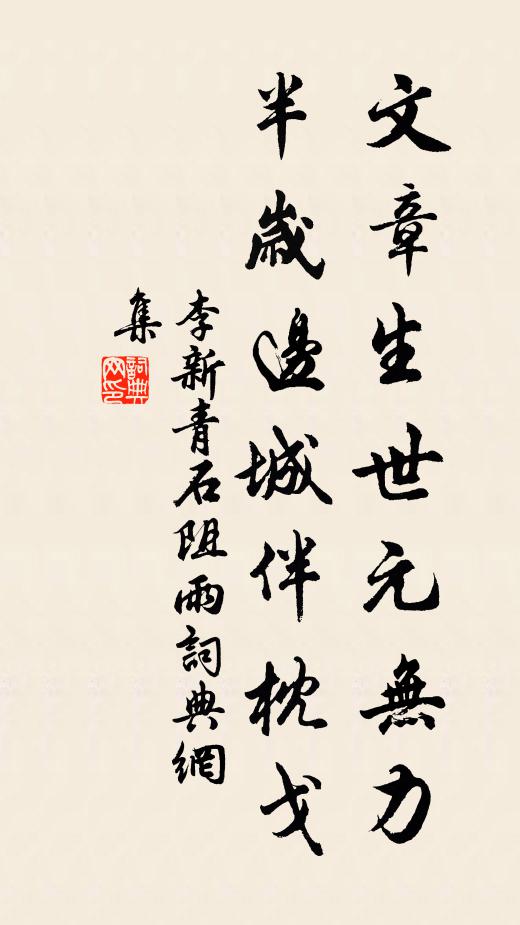 文章生世元無力
半歲邊城伴枕戈
李新青石阻雨詞典網
集
詞典
网印